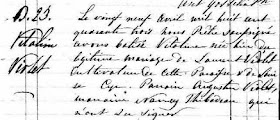 B. 23.
Vitaline
Violet
Le vingt neuf avril mil huit cent
quarante trois nous Prêtre soussigné
avons baptisé Vitaline née hier du
légitime mariage de Laurent Violet
cultivateur de cette Paroisse de
Cyr. Parrain Augustin Violet,
marraine Nancy Thibodeau qui
n'ont su signer